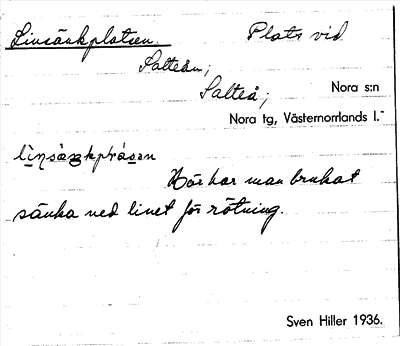 Linsänkplatsen. Plats vid
Salteån;
Salteå; Nora s:n
Nora tg, Västernorrlands l.
Här har man brukat
sänka ned linet för rötning.
Sven Hiller 1936.